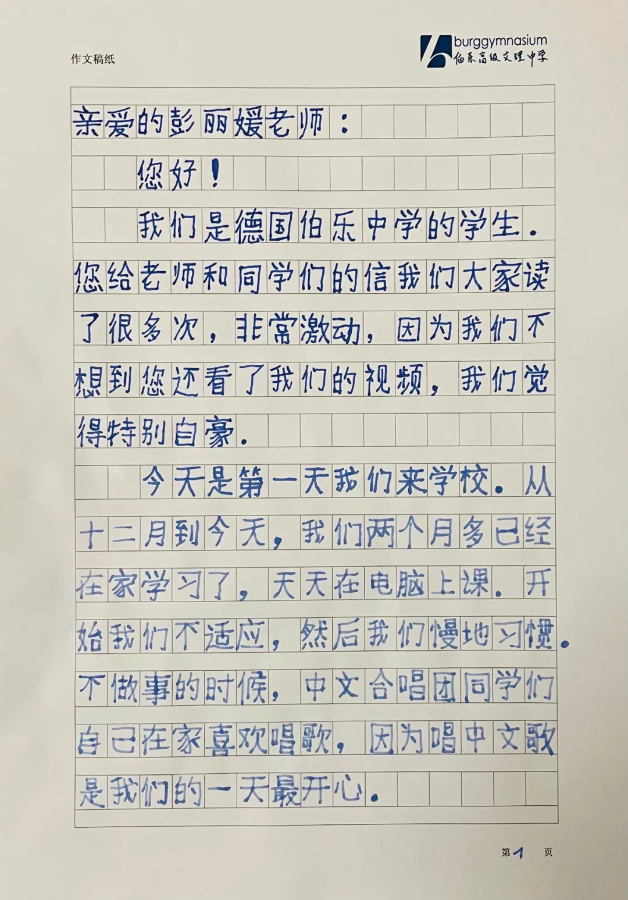 作文稿纸
burggymnasium
伯乐高级文理中学
亲爱的彭丽媛老师：
您好！
我们是德国伯乐中学的学生.
您给老师和同学们的信我们大家读
了很多次，非常激动，因为我们不
想到您还看了我们的视频，我们觉
得特别自豪.
今天是第一天我们来学校。从
十二月到今天，我们两个月多已经
在家学习了，天天在电脑上课.开
始我们不适应，然后我们慢地习惯。
不做事的时候，中文合唱团同学们
自己在家喜欢唱歌，因为唱中文歌
是我们的一天最开心.
第1页